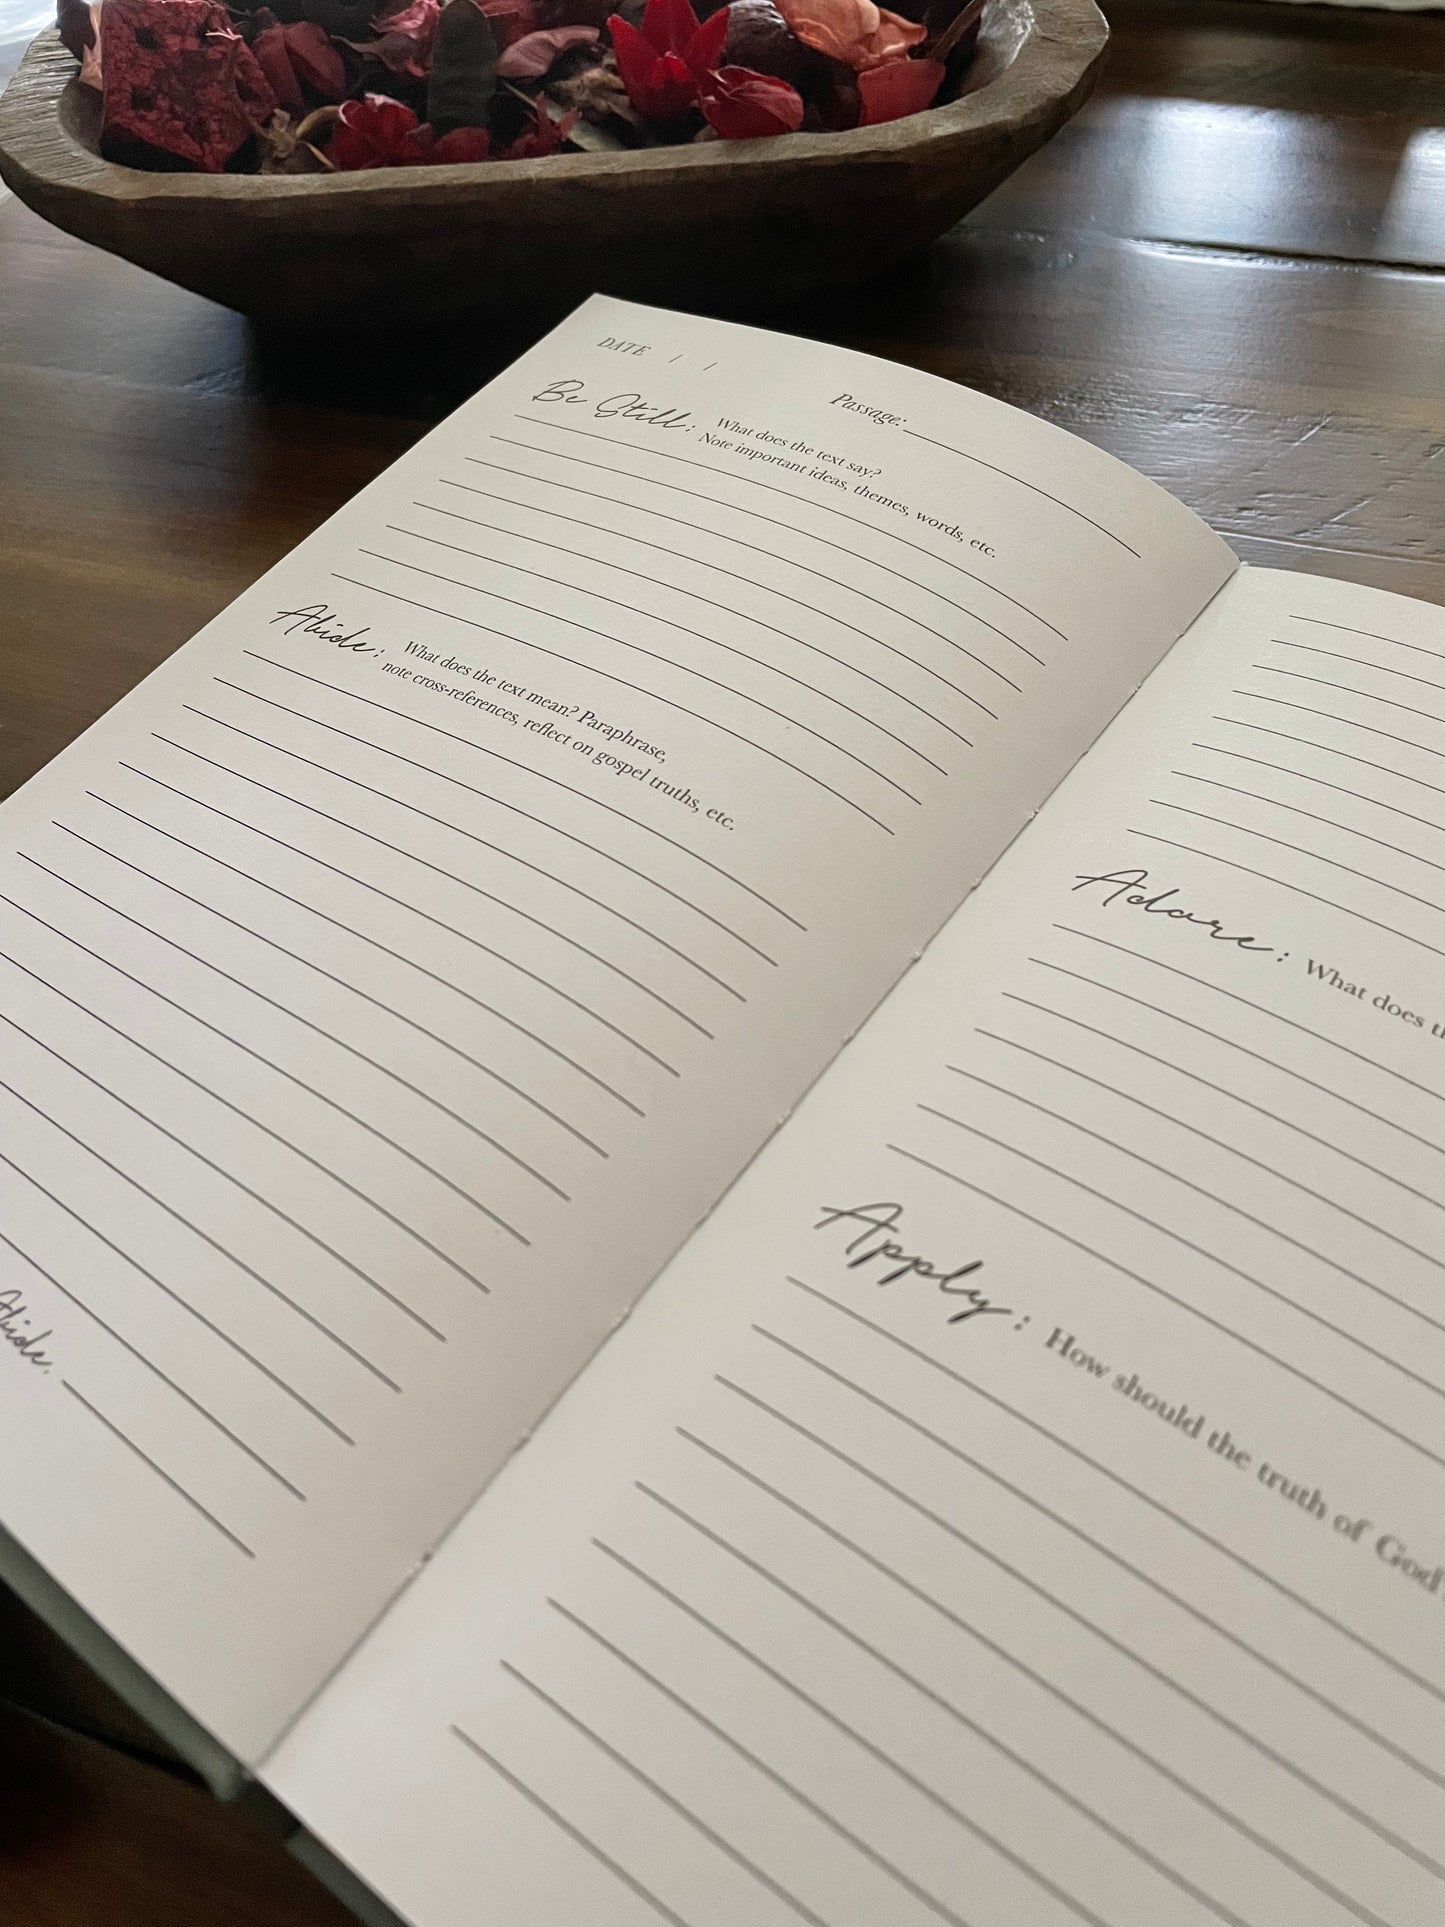 DATE / /
Passage:
Be Still: What does the text say?
Note important ideas, themes, words, etc.
Abide: What does the text mean? Paraphrase,
note cross-references, reflect on gospel truths, etc.
Abide.
Adore: What does
Apply: How should the truth of God